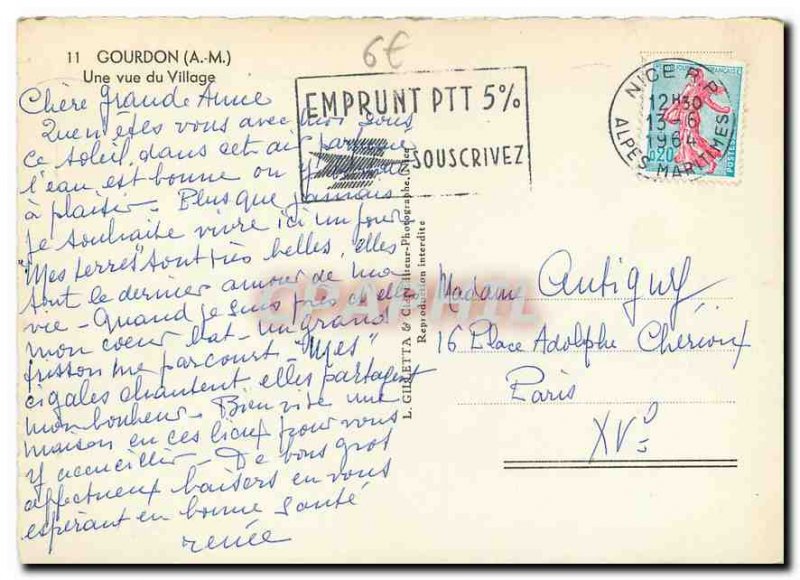 11 GOURDON (A.-M.)
Une vue du Village
6€
EMPRUNT PTT 5%
SOUSCRIVEZ
NICE R.P.
12H30
13-6
1964
ALPES MARITIMES
0,20
POSTES
Chère grande Amie
Que n'êtes vous avec moi sous
ce soleil, dans cet air parfumé
l'eau est bonne on
à plaisir - Plus que jamais
je souhaite vivre ici un jour
"Mes terres" sont très belles, elles
sont le dernier amour de ma
vie - Quand je suis près d'elles
mon coeur bat - un grand
frisson me parcourt - "Mes"
cigales chantent elles partagent
mon bonheur - Bien vite une
maison en ces lieux pour vous
y accueillir - De vous gros
affectueux baisers en vous
espérant en bonne santé
renée
L. GILLETTA & Cie, Editeur-Photographe, Nice
Reproduction interdite
Madame Antigny
16 Place Adolphe Chérioux
Paris
XVe